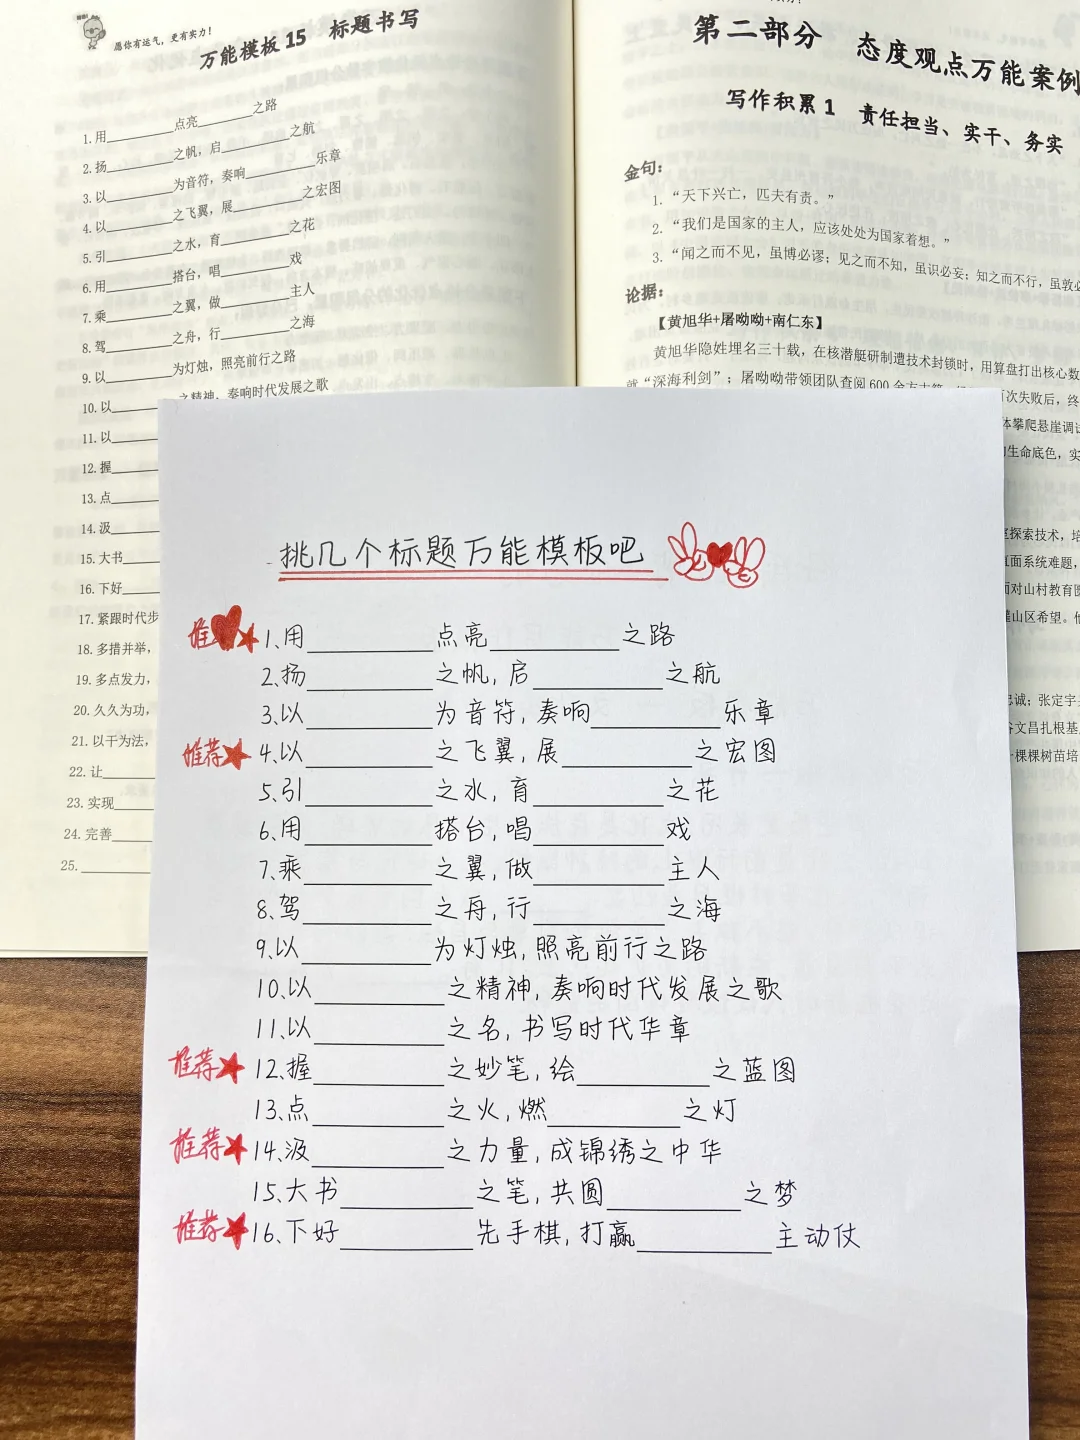 愿你有运气，更有实力！
万能模板15 标题书写
1.用________点亮________之路
2.扬________之帆，启________之航
3.以________为音符，奏响________乐章
4.以________之飞翼，展________之宏图
5.引________之水，育________之花
6.用________搭台，唱________戏
7.乘________之翼，做________主人
8.驾________之舟，行________之海
9.以________为灯烛，照亮前行之路
10.以________之精神，奏响时代发展之歌
11.以
12.握
13.点
14.汲
15.大书
16.下好
17.紧跟时代步
18.多措并举，
19.多点发力，
20.久久为功，
21.以干为法，
22.让
23.实现
24.完善
25.
第二部分 态度观点万能案例
写作积累1 责任担当、实干、务实
金句：
1.“天下兴亡，匹夫有责。”
2.“我们是国家的主人，应该处处为国家着想。”
3.“闻之而不见，虽博必谬；见之而不知，虽识必妄；知之而不行，虽敦必
论据：
【黄旭华+屠呦呦+南仁东】
黄旭华隐姓埋名三十载，在核潜艇研制遭技术封锁时，用算盘打出核心数
就“深海利剑”；屠呦呦带领团队查阅600余
百次失败后，终
体攀爬悬崖调试
生命底色，实
探索技术，培
直面系统难题，
面对山村教育
山区希望。
忠诚；张定宇
谷文昌扎根基
棵棵树苗培
挑几个标题万能模板吧
推荐 1、用________点亮________之路
2、扬________之帆，启________之航
3、以________为音符，奏响________乐章
推荐 4、以________之飞翼，展________之宏图
5、引________之水，育________之花
6、用________搭台，唱________戏
7、乘________之翼，做________主人
8、驾________之舟，行________之海
9、以________为灯烛，照亮前行之路
10、以________之精神，奏响时代发展之歌
11、以________之名，书写时代华章
推荐 12、握________之妙笔，绘________之蓝图
13、点________之火，燃________之灯
推荐 14、汲________之力量，成锦绣之中华
15、大书________之笔，共圆________之梦
推荐 16、下好________先手棋，打赢________主动仗